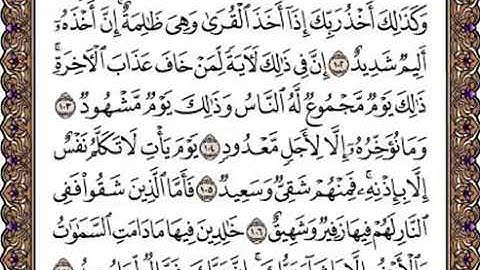 وَكَذَٰلِكَ أَخْذُ رَبِّكَ إِذَآ أَخَذَ ٱلْقُرَىٰ وَهِىَ ظَٰلِمَةٌ ۚ إِنَّ أَخْذَهُۥٓ
أَلِيمٌ شَدِيدٌ ١٠٢ إِنَّ فِى ذَٰلِكَ لَءَايَةً لِّمَنْ خَافَ عَذَابَ ٱلْءَاخِرَةِ ۚ
ذَٰلِكَ يَوْمٌ مَّجْمُوعٌ لَّهُ ٱلنَّاسُ وَذَٰلِكَ يَوْمٌ مَّشْهُودٌ ١٠٣
وَمَا نُؤَخِّرُهُۥٓ إِلَّا لِأَجَلٍ مَّعْدُودٍ ١٠٤ يَوْمَ يَأْتِ لَا تَكَلَّمُ نَفْسٌ
إِلَّا بِإِذْنِهِۦ ۚ فَمِنْهُمْ شَقِىٌّ وَسَعِيدٌ ١٠٥ فَأَمَّا ٱلَّذِينَ شَقُوا۟ فَفِى
ٱلنَّارِ لَهُمْ فِيهَا زَفِيرٌ وَشَهِيقٌ ١٠٦ خَٰلِدِينَ فِيهَا مَا دَامَتِ ٱلسَّمَٰوَٰتُ